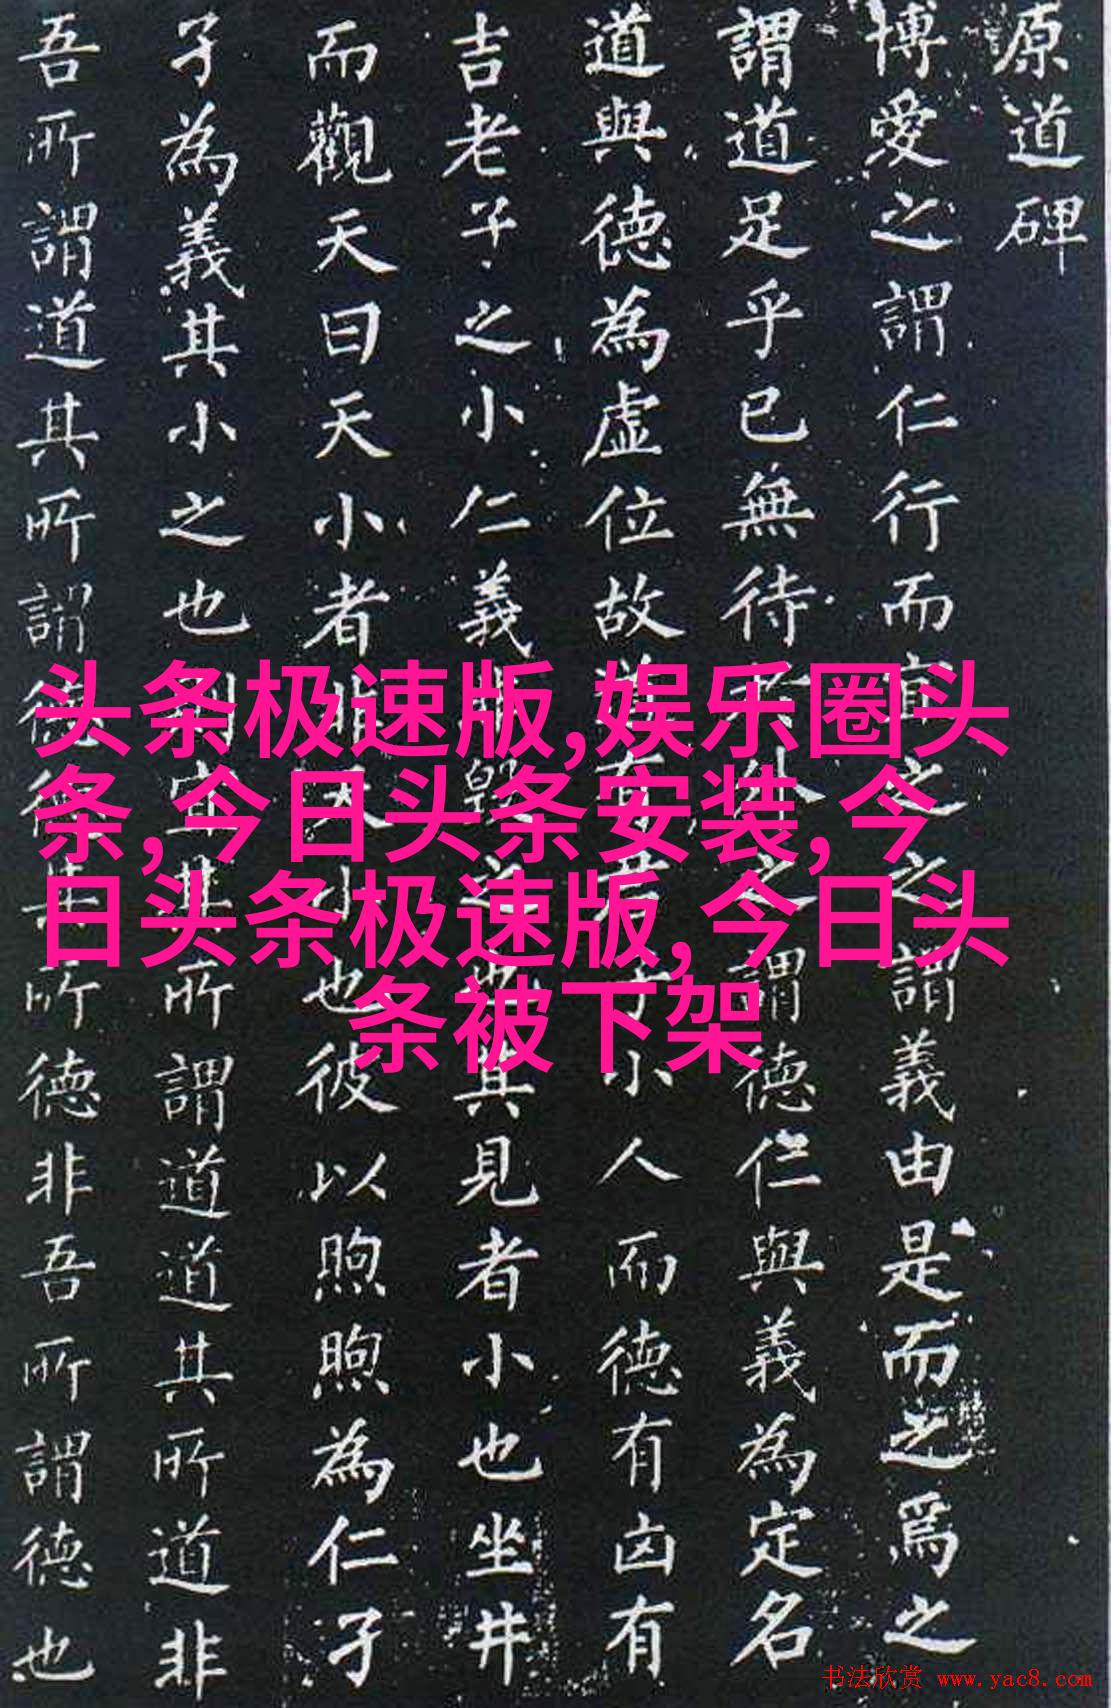 原道碑
博愛之謂仁行而宜之之謂義由是而之爲之
謂道足乎已無待於外之謂德仁與義為定名
道與德為虛位故道有君子小人而德有凶有
吉老子之小仁義非毀之也其見者小也坐井
而觀天曰天小者非天小也彼以煦煦為仁孑
孑為義其小之也則宜其所謂道道其所道非
吾所謂道其所謂德德其所德非吾所謂德也
头条极速版,娱乐圈头
条,今日头条安装,今
日头条极速版,今日头
条被下架
书法欣赏 www.yac8.com